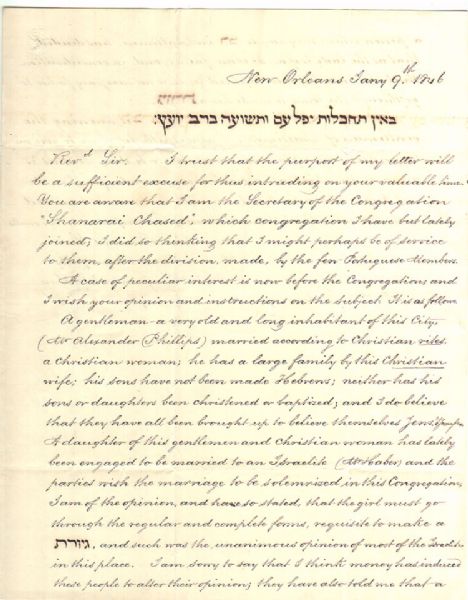 New Orleans Jany 9.th 1846
באין תחבלות יפל עם ותשועה ברב יועץ:
Rev.d Sir. I trust that the purport of my letter will
be a sufficient excuse for thus intruding on your valuable time.
You are aware that I am the Secretary of the Congregation
"Shanarai Chased", which congregation I have but lately
joined; I did so thinking that I might perhaps be of service
to them, after the division, made, by the few Portuguese Members.
A case of peculiar interest is now before the Congregation, and
I wish your opinion and instructions on the subject. It is as follows
A gentleman - a very old and long inhabitant of this City,
(Mr Alexander Phillips) married according to Christian rites
a Christian woman; he has a large family by this Christian
wife; his sons have not been made Hebrews; neither has his
sons or daughters been christened or baptized; and I do believe
that they have all been brought up to believe themselves Jews.
A daughter of this gentleman and Christian woman has lately
been engaged to be married to an Israelite (Mr Haber) and the
parties wish the marriage to be solemnized, in this Congregation,
I am of the opinion, and have so stated, that the girl must go
through the regular and complete forms, requisite to make a
גיורת, and such was the unanimous opinion of most of the Israelites
in this place. I am sorry to say that I think money has induced
these people to alter their opinion; they have also told me that a